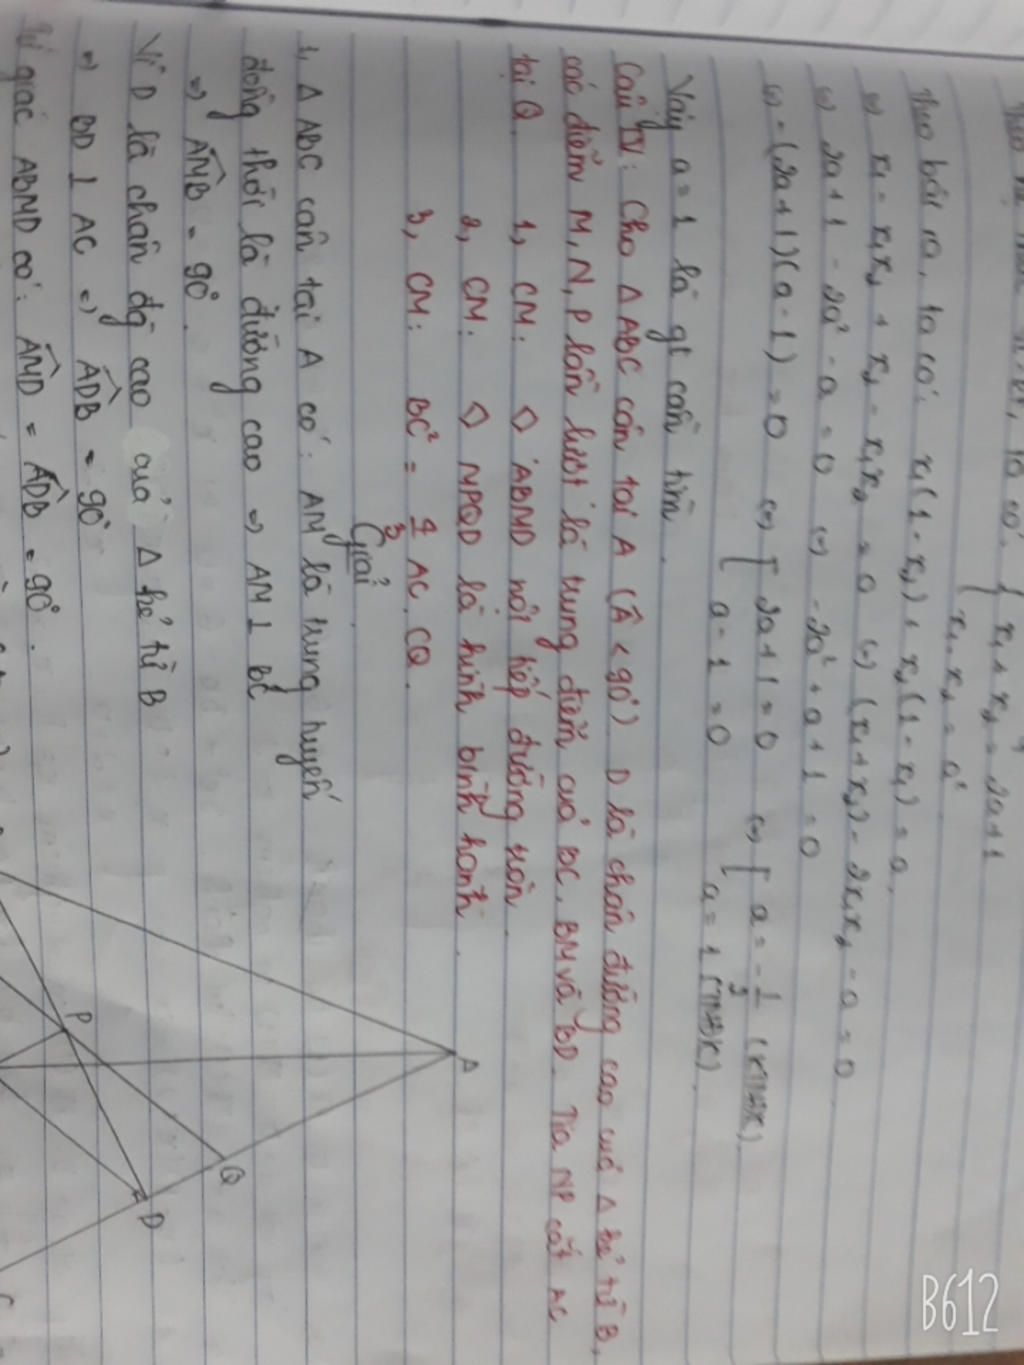 ta có: { x₁ + x₂ = 2a+1
x₁. x₂ = a²
Theo bài ra, ta có: x₁(1 - x₂) + x₂(1 - x₁) = a.
(=) x₁ - x₁x₂ + x₂ - x₁x₂ = a (=) (x₁+x₂) - 2x₁x₂ - a = 0
(=) 2a+1 - 2a² - a = 0 (=) -2a² + a + 1 = 0
(=) -(2a+1)(a-1) = 0 (=) [ 2a+1 = 0 (=) [ a = -1/2 (KTMĐK)
a - 1 = 0 a = 1 (TMĐK)
Vậy a = 1 là gt cần tìm.
Câu IV: Cho △ABC cân tại A (Â < 90°) D là chân đường cao của △ kẻ từ B,
các điểm M, N, P lần lượt là trung điểm của BC, BM và BD. Tia NP cắt AC
tại Q. 1, CM: ◇ ABMD nội tiếp đường tròn.
2, CM: ◇ NPQD là hình bình hành.
3, CM: BC² = 4/3 AC. CQ.
Giải
1, △ ABC cân tại A có: AM là trung tuyến
đồng thời là đường cao => AM ⊥ BC
=> AMB = 90°.
Vì D là chân đg cao của △ kẻ từ B
=> BD ⊥ AC => ADB = 90°
Tứ giác ABMD có: AMD = ADB = 90°.
A
P
Q
D
C
B612